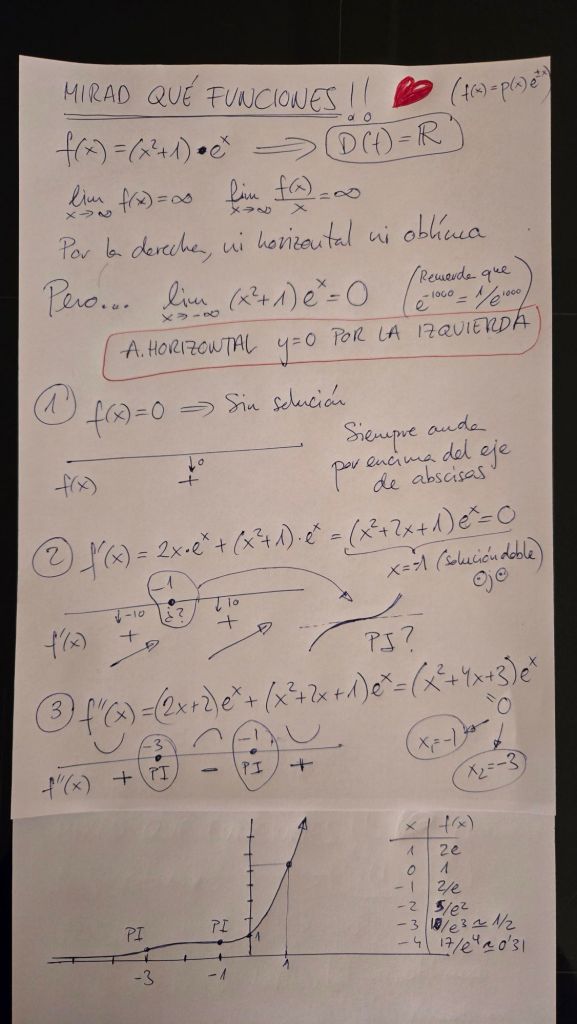 MIRAD QUÉ FUNCIONES!! ❤ (f(x)=p(x)e^±x)
f(x)=(x²+1)·e^x ⟹ D(f)=ℝ
lim x→∞ f(x)=∞ lim x→∞ f(x)/x=∞
Por la derecha, ni horizontal ni oblicua
Pero... lim x→-∞ (x²+1)e^x=0 (Recuerda que e^-1000 = 1/e^1000)
A.HORIZONTAL y=0 POR LA IZQUIERDA
① f(x)=0 ⟹ Sin solución
Siempre anda
por encima del eje
de abscisas
↓0
f(x) +
② f'(x)= 2x·e^x+(x²+1)·e^x=(x²+2x+1)e^x=0
x=-1 (solución doble)
-1
↓-10 ¿? ↓10
f'(x) + +
PI?
③ f''(x)=(2x+2)e^x+(x²+2x+1)e^x=(x²+4x+3)e^x
=0
x₁=-1
x₂=-3
-3 -1
f''(x) + PI - PI +
x f(x)
1 2e
0 1
-1 2/e
-2 5/e²
-3 10/e³≃1/2
-4 17/e⁴≃0'31
PI PI 1
-3 -1 1